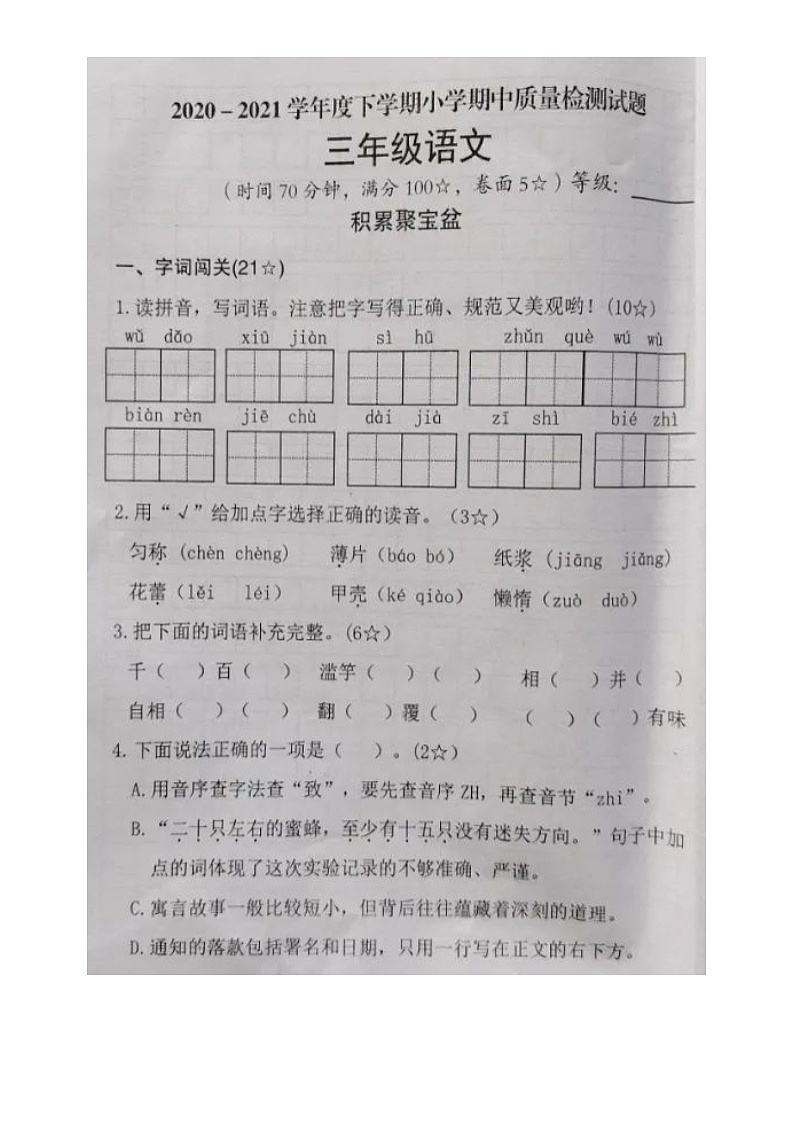 2020－2021学年度下学期小学期中质量检测试题
三年级语文
（时间70分钟，满分100☆，卷面5☆）等级：
积累聚宝盆
一、字词闯关(21☆)
1.读拼音，写词语。注意把字写得正确、规范又美观哟！(10☆)
wǔ dǎo xiū jiàn sì hū zhǔn què wú wù
biàn rèn jiē chù dài jià zī shì bié zhì
2.用“√”给加点字选择正确的读音。（3☆）
匀称（chèn chèng） 薄片（báo bó） 纸浆（jiāng jiǎng）
花蕾（lěi léi） 甲壳（ké qiào） 懒惰（zuò duò）
3.把下面的词语补充完整。(6☆)
千（ ）百（ ） 滥竽（ ）（ ） 相（ ）并（ ）
自相（ ）（ ） 翻（ ）覆（ ） （ ）（ ）有味
4.下面说法正确的一项是（ ）。(2☆)
A.用音序查字法查“致”，要先查音序ZH，再查音节“zhi”。
B.“二十只左右的蜜蜂，至少有十五只没有迷失方向。”句子中加
点的词体现了这次实验记录的不够准确、严谨。
C.寓言故事一般比较短小，但背后往往蕴藏着深刻的道理。
D.通知的落款包括署名和日期，只用一行写在正文的右下方。